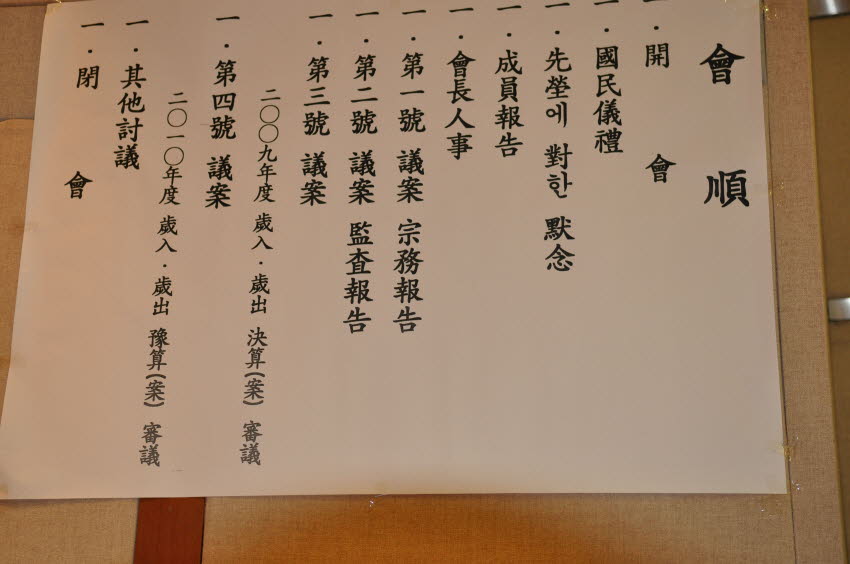 會順
一.開會
一.國民儀禮
一.先塋에 對한 默念
一.成員報告
一.會長人事
一.第一號 議案 宗務報告
一.第二號 議案 監査報告
一.第三號 議案
二〇〇九年度 歲入.歲出 決算(案) 審議
一.第四號 議案
二〇一〇年度 歲入.歲出 豫算(案) 審議
一.其他討議
一.閉會